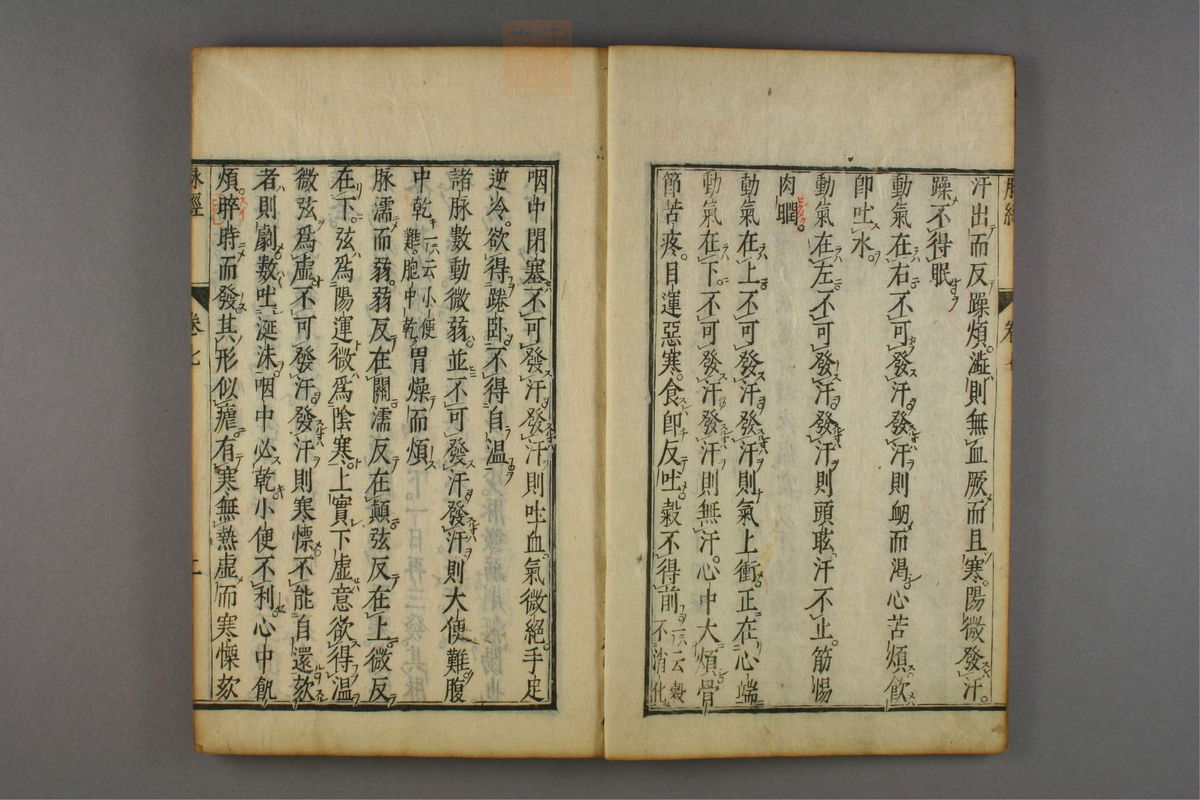 汗出而反躁煩澁則無血厥而且寒陽微發汗
躁不得眠
動氣在右不可發汗發汗則衂而渴心苦煩飲
卽吐水
動氣在左不可發汗發汗則頭眩汗不止筋惕
肉瞤
動氣在上不可發汗發汗則氣上衝正在心端
動氣在下不可發汗發汗則無汗心中大煩骨
節苦疼目運惡寒食卽反吐穀不得前一云穀不消化
咽中閉塞不可發汗發汗則吐血氣微絕手足
逆冷欲得踡臥不得自溫
諸脉數動微弱並不可發汗發汗則大便難腹
中乾一云小便難胞中乾胃燥而煩
脉濡而弱弱反在關濡反在顛弦反在上微反
在下弦爲陽運微爲陰寒上實下虛意欲得溫
微弦爲虛不可發汗發汗則寒慄不能自還欬
者則劇數吐涎沫咽中必乾小便不利心中飢
煩晬時而發其形似瘧有寒無熱虛而寒慄欬
脉經
卷七
二